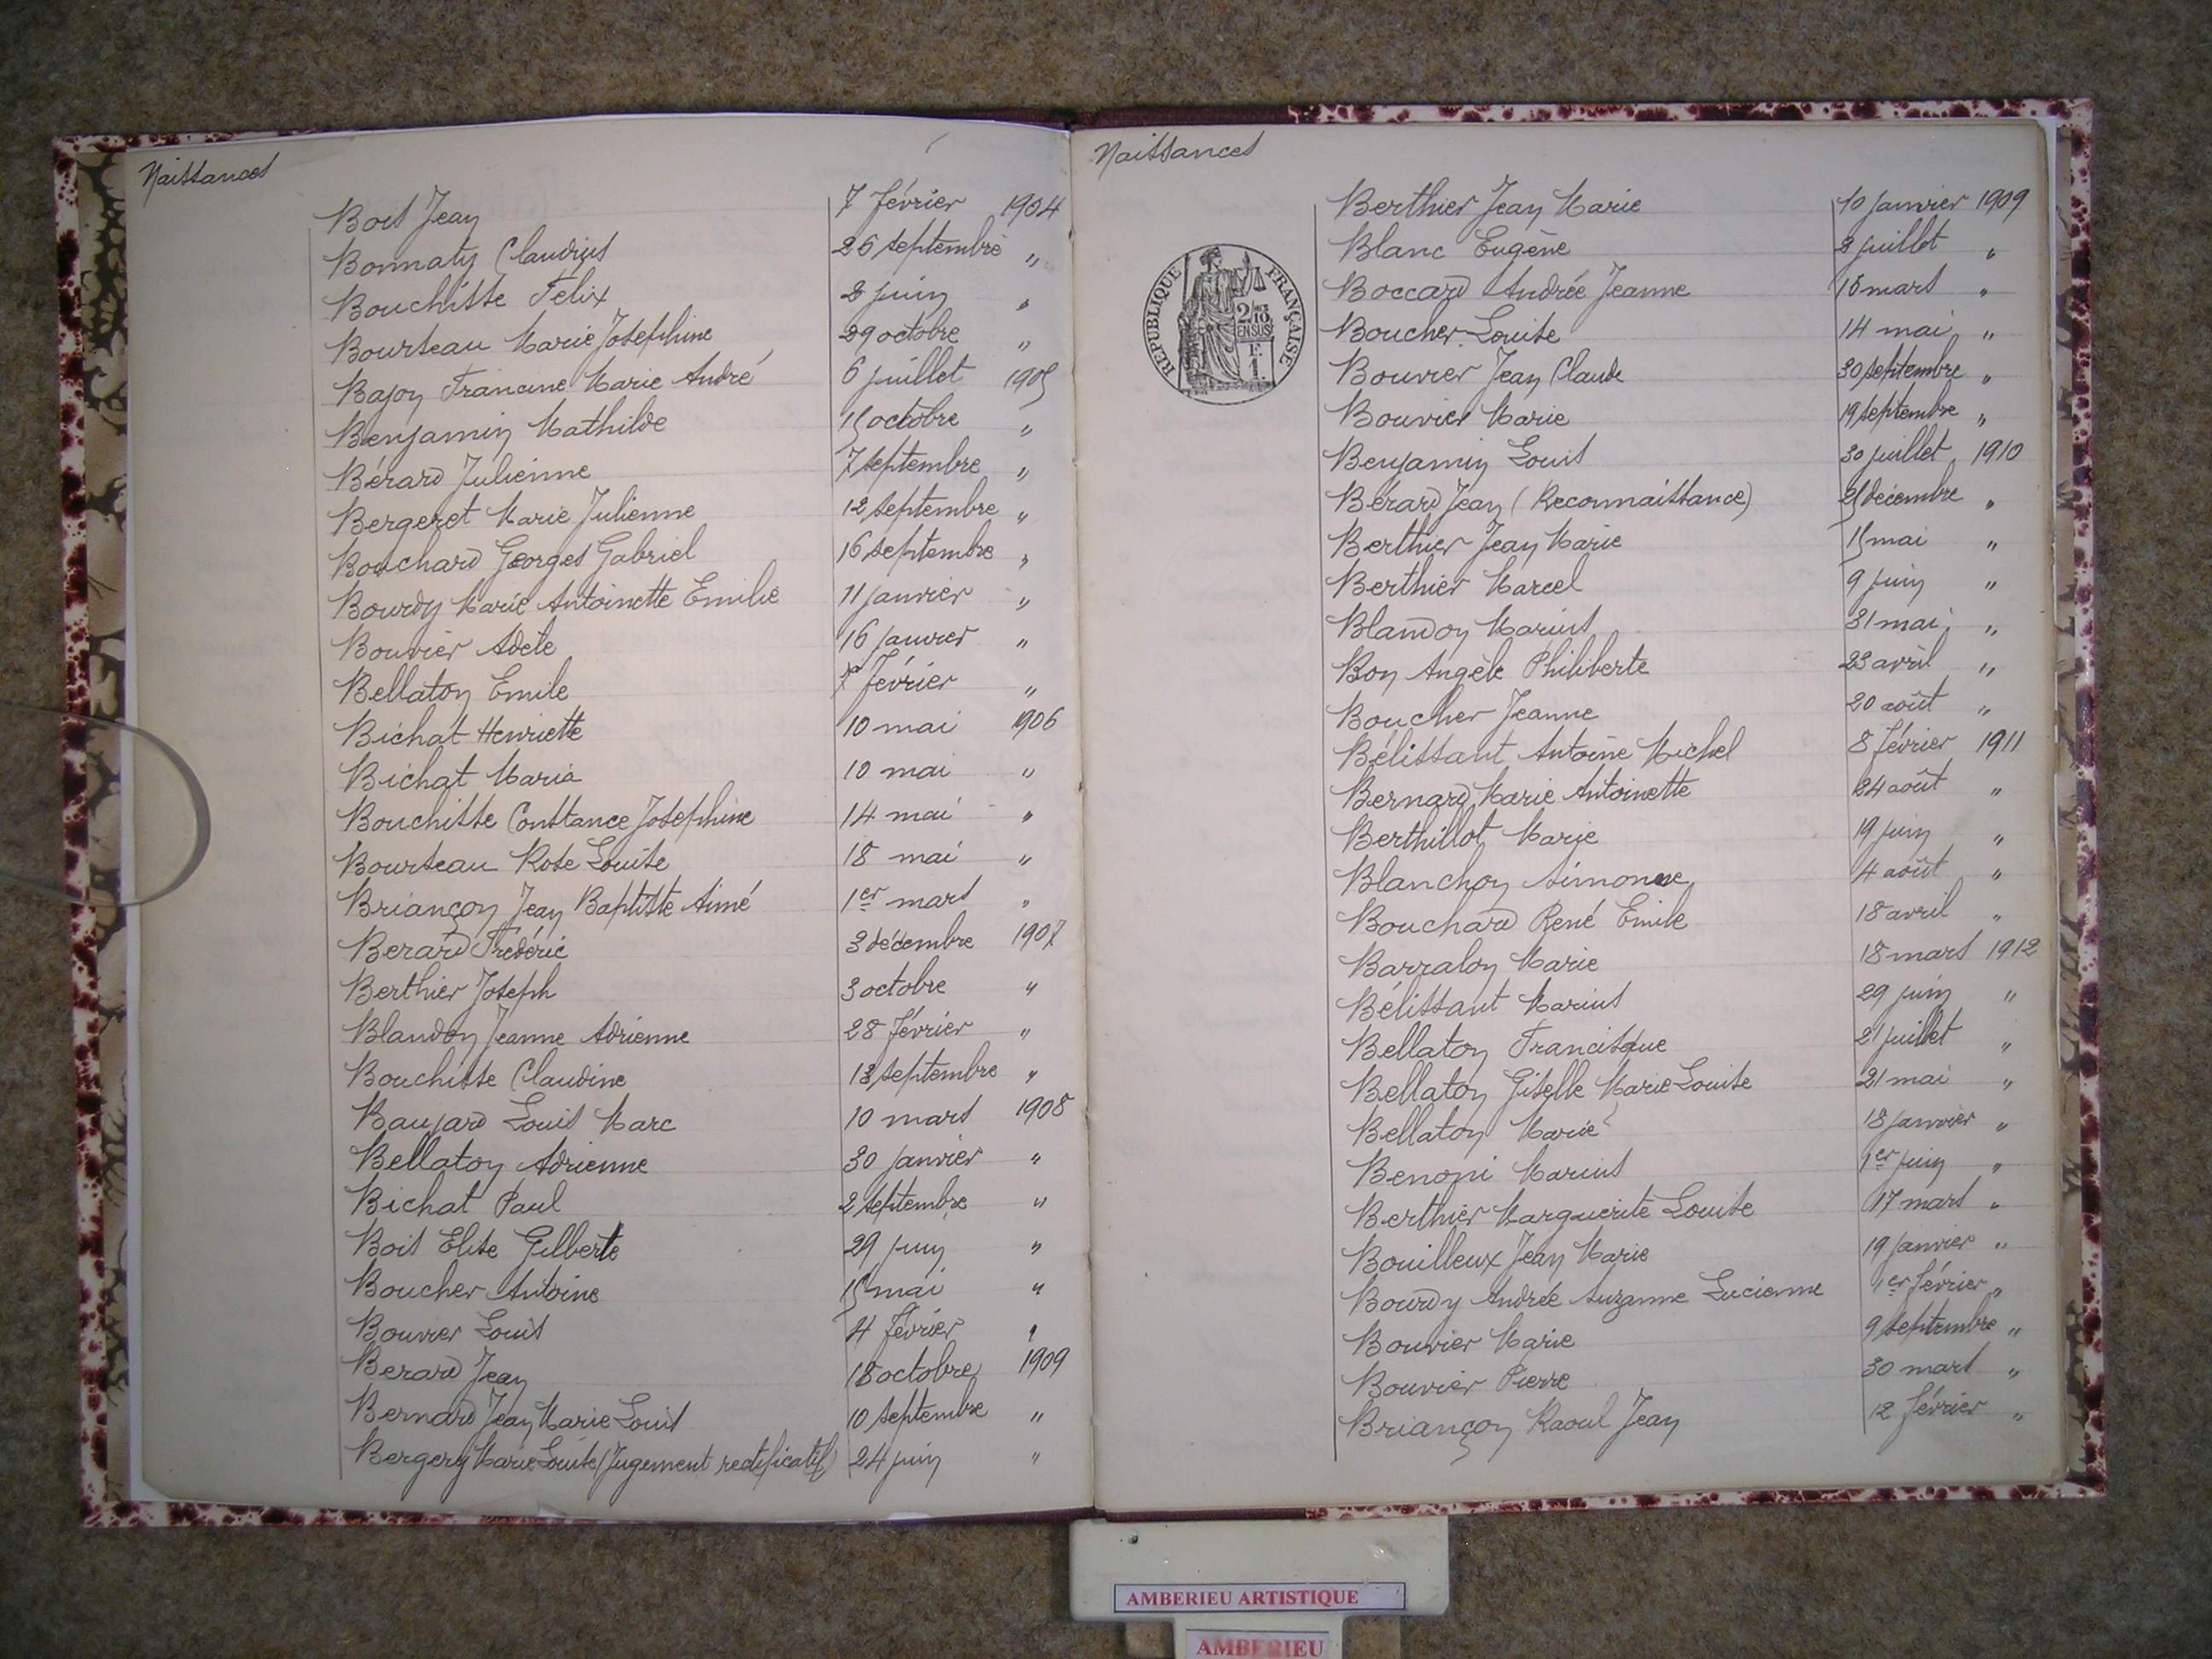 Naissances
Bois Jean 7 février 1904
Bonnaty Claudius 26 septembre "
Bouchisse Felix 8 juin "
Bourseau Marie Josephine 29 octobre "
Bajon Francine Marie André 6 juillet 1905
Benjamin Mathilde 15 octobre "
Bérard Julienne 7 septembre "
Bergeret Marie Julienne 12 septembre "
Bouchard Georges Gabriel 16 septembre "
Bourdy Marie Antoinette Emilie 11 janvier "
Bouvier Adèle 16 janvier "
Bellaton Emile 7 février "
Bichat Henriette 10 mai 1906
Bichat Maria 10 mai "
Bouchisse Constance Josephine 14 mai "
Bourseau Rose Louise 18 mai "
Briançon Jean Baptiste Aimé 1er mars "
Berard Frédéric 3 décembre 1907
Berthier Joseph 3 octobre "
Blandon Jeanne Adrienne 28 février "
Bouchisse Claudine 13 septembre "
Baujard Louis Marc 10 mars 1908
Bellaton Adrienne 30 janvier "
Bichat Paul 2 septembre "
Bois Elise Gilberte 29 juin "
Boucher Antoine 15 mai "
Bouvier Louis 4 février "
Berard Jean 18 octobre 1909
Bernard Jean Marie Louis 10 septembre "
Bergery Marie Louise (Jugement rectificatif) 24 juin "
Naissances
REPUBLIQUE FRANÇAISE
2/10
EN SUS
F.
1.
Berthier Jean Marie 10 janvier 1909
Blanc Eugène 8 juillet "
Boccard Andrée Jeanne 15 mars "
Boucher Louise 14 mai "
Bouvier Jean Claude 30 septembre "
Bouvier Marie 19 septembre "
Benjamin Louis 30 juillet 1910
Bérard Jean (Reconnaissance) décembre "
Berthier Jean Marie 15 mai "
Berthier Marcel 9 juin "
Blandon Marius 31 mai "
Bon Angèle Philiberte 23 avril "
Boucher Jeanne 20 août "
Bélissant Antoine Michel 8 février 1911
Bernard Marie Antoinette 24 août "
Berthillot Marie 19 juin "
Blanchon Simonne 4 août "
Bouchard René Emile 18 avril "
Barralon Marie 18 mars 1912
Bélissant Marius 29 juin "
Bellaton Francisque 21 juillet "
Bellaton Giselle Marie Louise 21 mai "
Bellaton Marie 18 janvier "
Benoni Marius 1er juin "
Berthier Marguerite Louise 17 mars "
Bouilleux Jean Marie 19 janvier "
Bourdy Andrée Suzanne Lucienne 1er février "
Bouvier Marie 9 septembre "
Bouvier Pierre 30 mars "
Briançon Raoul Jean 12 février "
AMBERIEU ARTISTIQUE
AMBERIEU